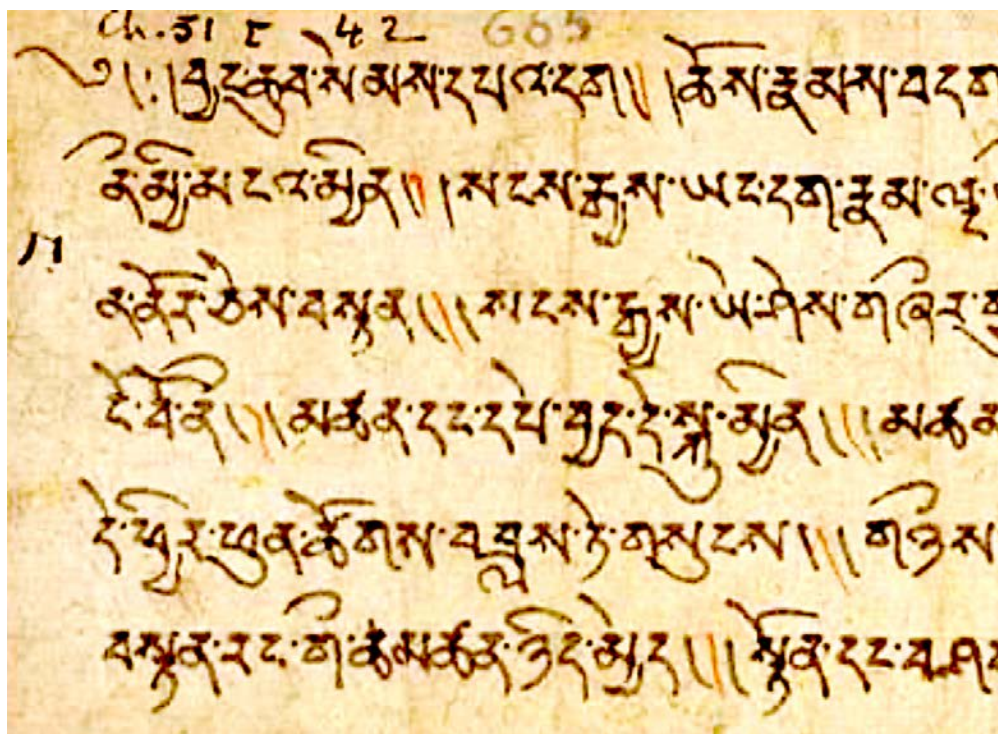 Ch. 51 I 42 665
༄། ། །བྱང་ཆུབ་སེམས་དཔའ་དག། །ཆོས་རྣམས་བདག
ནི་མྱི་མངའ་མྱིན།། །སངས་རྒྱས་ཡང་དག་རྣམ་
ན་ནོར་ཅེས་བསྟན།། །སངས་རྒྱས་ཡེ་ཤེས་གཞིར་
ངོ་བོ་ནི།། །མཚན་དང་དཔེ་བྱད་དེ་སྐུ་མྱིན།། །མཚན
དེ་ཕྱིར་ཕུན་ཚོགས་བསླབས་ཏེ་གསུངས།། །གཉིས
བསྟན་རང་གི་མཚན་ཉིད་མྱེད།། །སྟོན་དང་བཤད